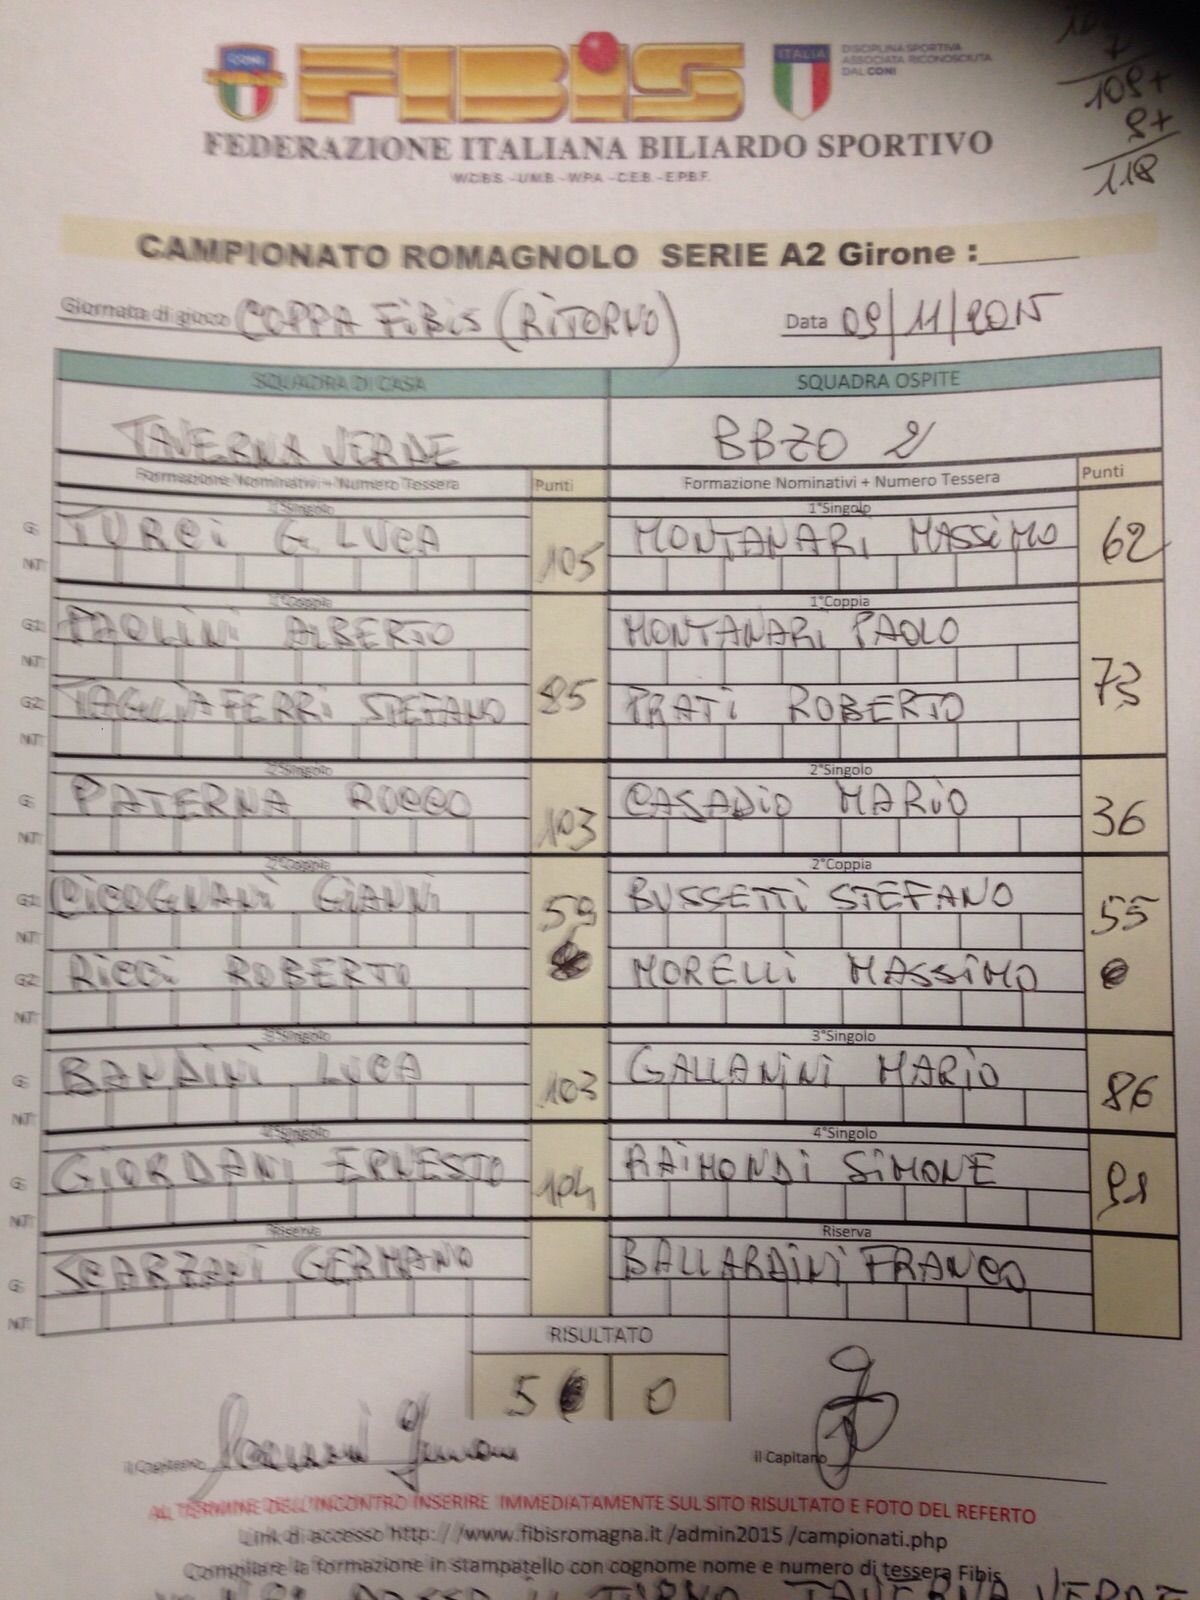 CONI
FIBIS
ITALIA
DISCIPLINA SPORTIVA
ASSOCIATA RICONOSCIUTA
DAL CONI
109+
9+
118
FEDERAZIONE ITALIANA BILIARDO SPORTIVO
W.C.B.S. - U.M.B. - W.P.A. - C.E.B. - E.P.B.F.
CAMPIONATO ROMAGNOLO SERIE A2 Girone :
Giornata di gioco COPPA FIBIS (RITORNO) Data 09/11/2015
SQUADRA DI CASA SQUADRA OSPITE
TAVERNA VERDE BBZO 2
Formazione Nominativi + Numero Tessera Punti Formazione Nominativi + Numero Tessera Punti
1°Singolo 1°Singolo
G: TURCI G. LUCA 105 MONTANARI MASSIMO 62
NT:
1°Coppia 1°Coppia
G1: PAOLINI ALBERTO 85 MONTANARI PAOLO 73
NT:
G2: TAGLIAFERRI STEFANO PRATI ROBERTO
NT:
2°Singolo 2°Singolo
G: PATERNA ROCCO 103 CASADIO MARIO 36
NT:
2°Coppia 2°Coppia
G1: CICOGNANI GIANNI 59 BUSSETTI STEFANO 55
NT:
G2: RICCI ROBERTO MORELLI MASSIMO
NT:
3°Singolo 3°Singolo
G: BANDINI LUCA 103 GALLANINI MARIO 86
NT:
4°Singolo 4°Singolo
G: GIORDANI ERNESTO 104 RAIMONDI SIMONE 91
NT:
Riserva Riserva
G: SCARZANI GERMANO BALLARDINI FRANCO
NT:
RISULTATO
5 0
il Capitano il Capitano
AL TERMINE DELL'INCONTRO INSERIRE IMMEDIATAMENTE SUL SITO RISULTATO E FOTO DEL REFERTO
Link di accesso http://www.fibisromagna.it/admin2015/campionati.php
Compilare la formazione in stampatello con cognome nome e numero di tessera Fibis
PASSA IL TURNO TAVERNA VERDE